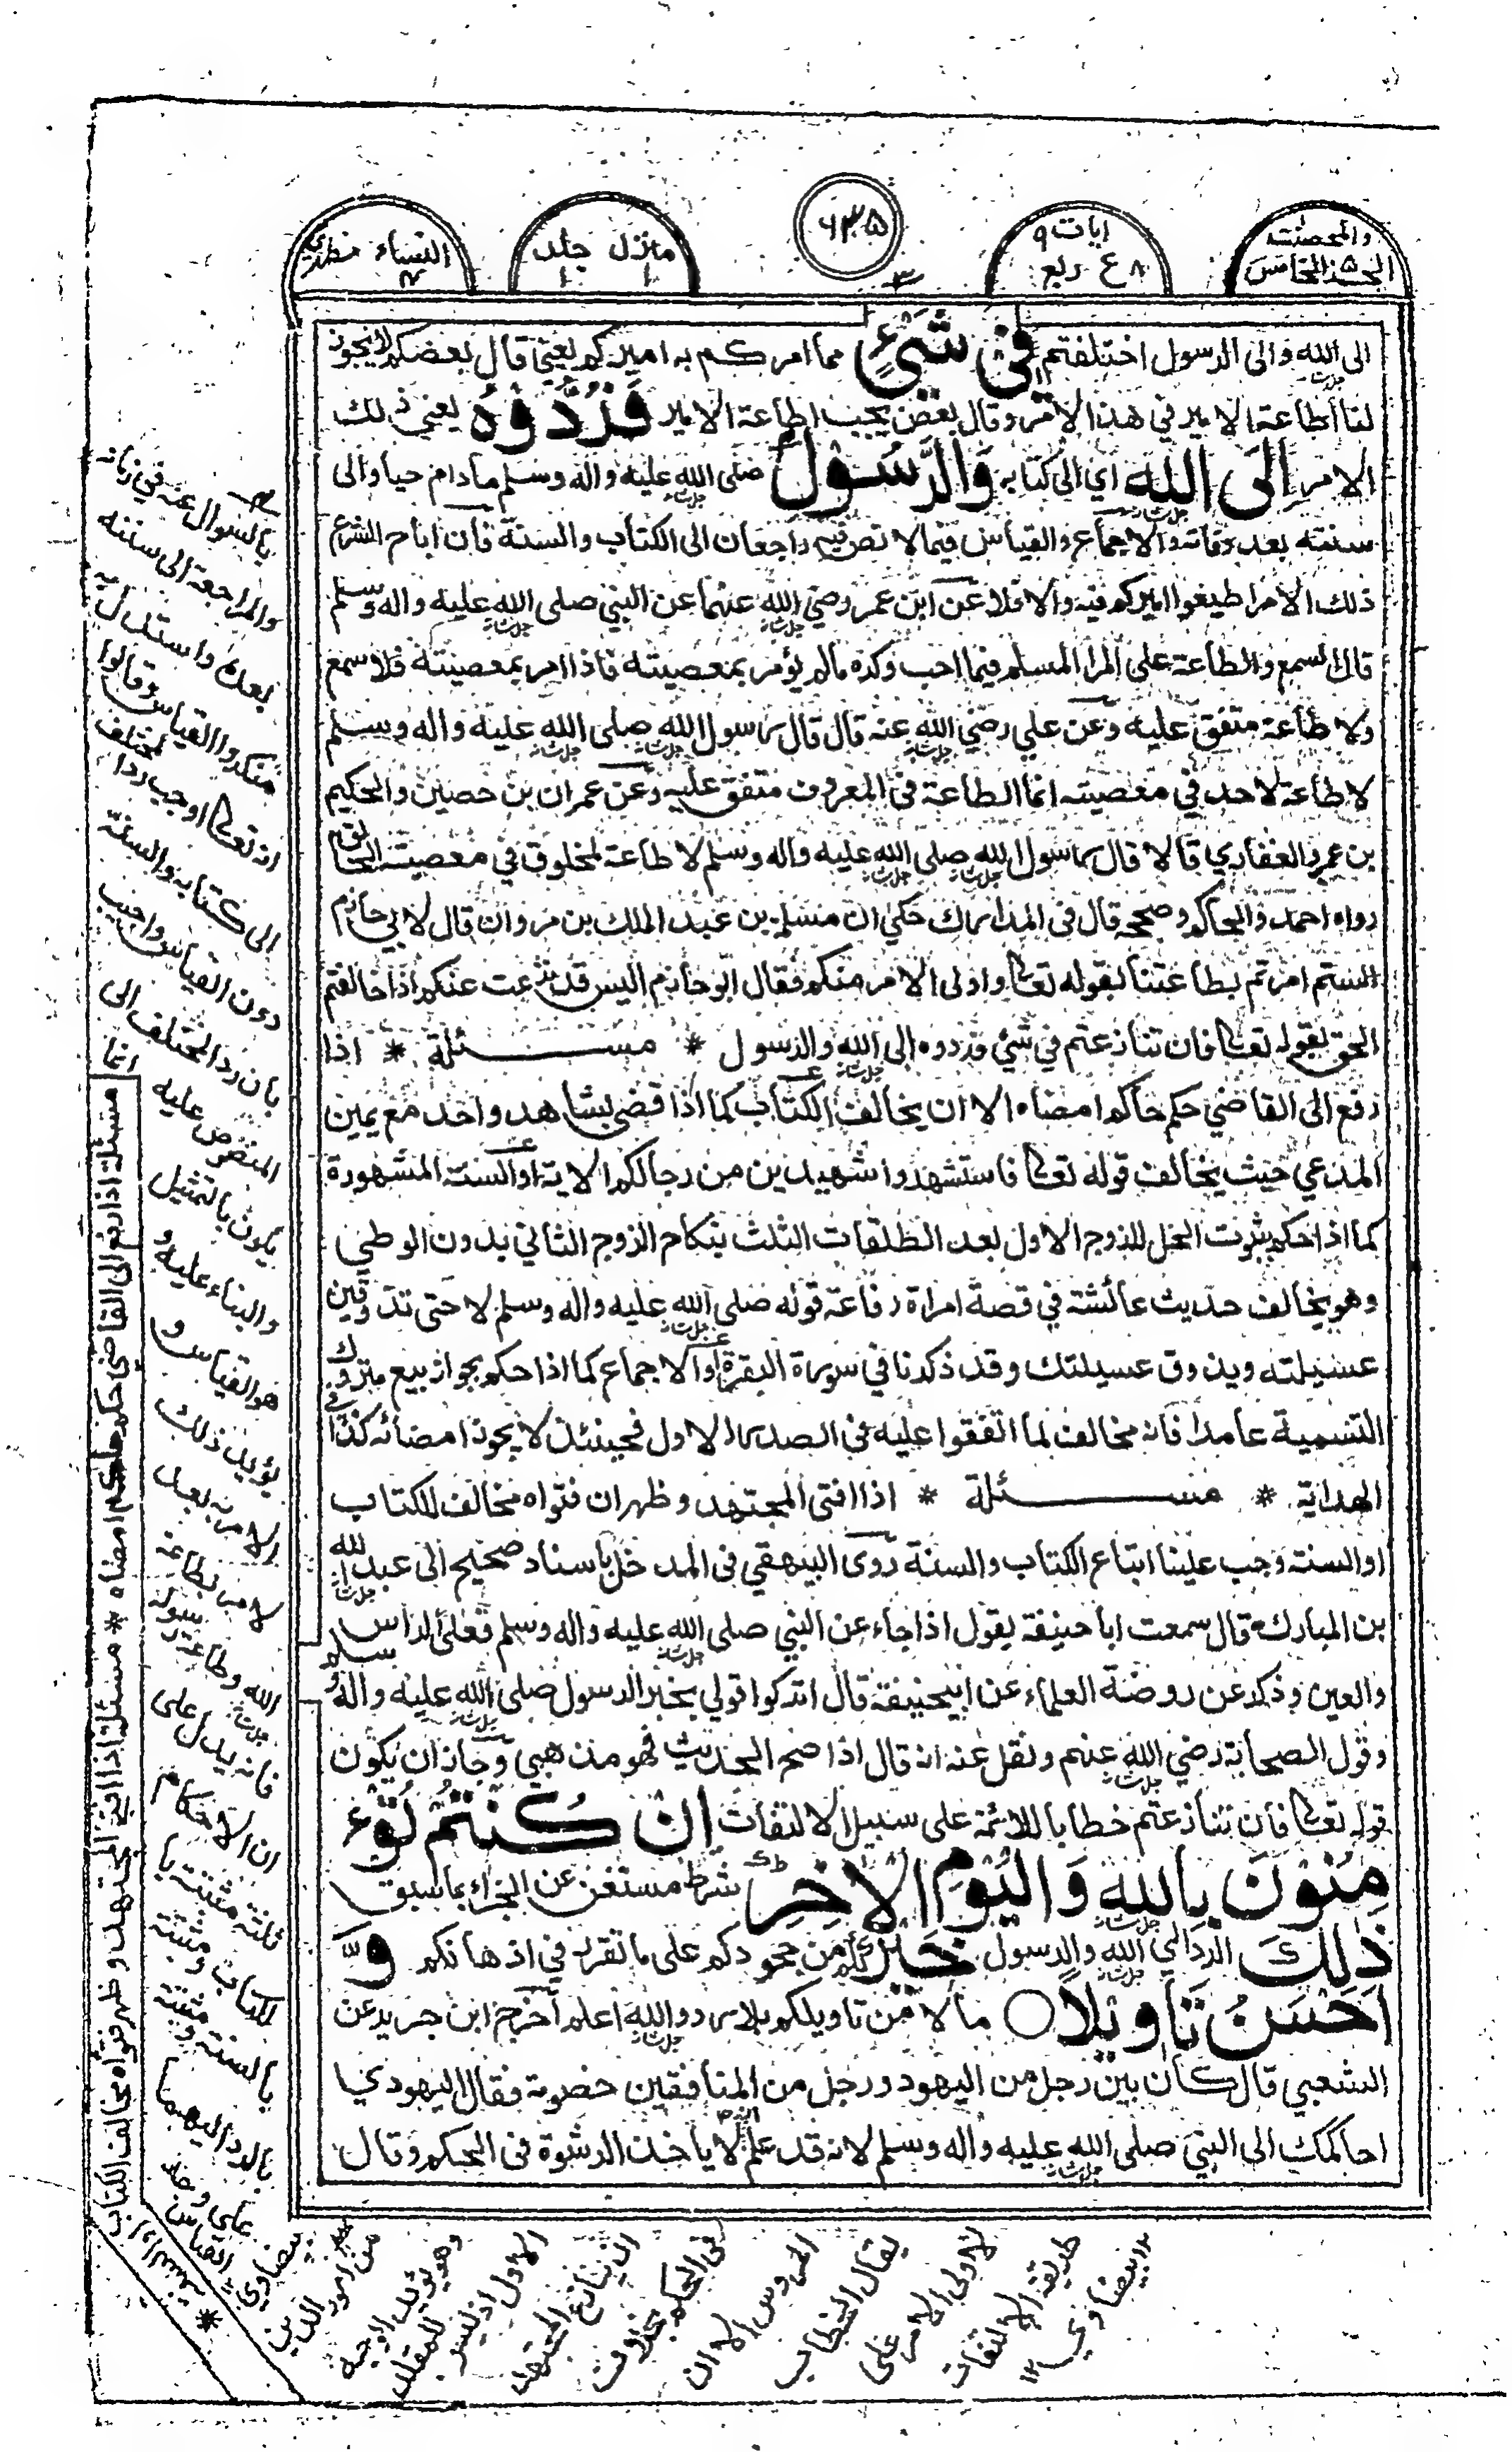 والمحصنت
الجزء الخامس ۵
ايات ۹
۸ ع ربع
۶۳۵
منازل جلد
۱ ۱
النساء مظهري
۴
الى الله والى الرسول اختلفتم فِيْ شَيْءٍ مما امركم به اميركم يعني قال بعضكم لا يجوز
لنا اطاعة الامير في هذا الامر وقال بعض يجب اطاعة الامير فَرُدُّوْهُ يعني ذلك
الامر اِلَى اللهِ اي الى كتابه وَالرَّسُوْلِ صلى الله عليه واله وسلم ما دام حيا والى
سنته بعد وفاته والاجماع والقياس فيما لا نص فيه راجعان الى الكتاب والسنة فان اباح الشرع
ذلك الامر اطيعوا اميركم فيه والا فلا عن ابن عمر رضي الله عنهما عن النبي صلى الله عليه واله وسلم
قال السمع والطاعة على المرأ المسلم فيما احب وكره مالم يؤمر بمعصيته فاذا امر بمعصيته فلا سمع
ولا طاعة متفق عليه وعن علي رضي الله عنه قال قال رسول الله صلى الله عليه واله وسلم
لا طاعة لاحد في معصيته انما الطاعة في المعروف متفق عليه وعن عمران بن حصين والحكيم
بن عمرو الغفاري قالا قال رسول الله صلى الله عليه واله وسلم لا طاعة لمخلوق في معصيت الخالق
رواه احمد والحاكم وصححه قال في المدارك حكي ان مسلم بن عبد الملك بن مروان قال لابي حازم
الستم امرتم بطاعتنا بقوله تعالى واولى الامر منكم فقال ابو حازم اليس قد نزعت عنكم اذا خالفتم
الحق بقوله تعالى فان تنازعتم في شئ فردوه الى الله والرسول * مسئلة * اذا
رفع الى القاضي حكم حاكم امضاه الا ان يخالف الكتاب كما اذا قضى بشاهد واحد مع يمين
المدعي حيث يخالف قوله تعالى فاستشهدوا شهيدين من رجالكم الاية او السنة المشهورة
كما اذا حكم بثبوت الحل للزوج الاول بعد الطلقات الثلث بنكاح الزوج الثاني بدون الوطي
وهو يخالف حديث عائشة في قصة امراة رفاعة قوله صلى الله عليه واله وسلم لا حتى تذوقين
عسيلته ويذوق عسيلتك وقد ذكرنا في سورة البقرة او الاجماع كما اذا حكم بجواز بيع متروك
التسمية عامدا فانه مخالف لما اتفقوا عليه في الصدر الاول فحينئذ لا يجوز امضائه كذا في
الهداية * مسئلة * اذا افتى المجتهد وظهر ان فتواه مخالف للكتاب
او السنة وجب علينا اتباع الكتاب والسنة روى البيهقي في المدخل باسناد صحيح الى عبد الله
بن المبارك قال سمعت ابا حنيفة يقول اذا جاء عن النبي صلى الله عليه واله وسلم فعلى الراس
والعين وذكر عن روضة العلماء عن ابيحنيفة قال اتركوا قولي بخبر الرسول صلى الله عليه واله وسلم
وقول الصحابة رضي الله عنهم ونقل عنه انه قال اذا صح الحديث فهو مذهبي وجاز ان يكون
قوله تعالى فان تنازعتم خطابا للائمة على سبيل الالتفات اِنْ كُنْتُمْ تُؤْ
مِنُوْنَ بِاللهِ وَالْيَوْمِ الْاٰخِرِ شرط مستغن عن الجزاء بما سبق
ذٰلِكَ الرد الى الله والرسول خَيْرٌ لكم من جحودكم على ما تقرر في اذهانكم وَّ
اَحْسَنُ تَاْوِيْلًا ○ مآلا من تاويلكم بلا رد والله اعلم اخرج ابن جرير عن
الشعبي قال كان بين رجل من اليهود ورجل من المنافقين خصومة فقال اليهودي
احاكمك الى النبي صلى الله عليه واله وسلم لانه قد علم انه لا ياخذ الرشوة في الحكم وقال
بالسوال عنه في زمانه
والمراجعة الى سنته
بعده واستدل به
منكروا القياس وقالوا
انه تعالى اوجب رد المختلف
الى كتابه والسنة
دون القياس واجيب
بان رد المختلف الى
المنصوص عليه انما
يكون بالتمثيل
والبناء عليه و
هو القياس و
يؤيد ذلك
الامر به بعد
الامر بطاعة
الله وطاعة رسوله
فانه يدل على
ان الاحكام
ثلثة مثبتة با
لكتاب ومثبتة
بالسنة ومثبتة
بالرد اليهما
على وجه
القياس
بيضاوي
من امور الدين
وهو يؤيد الوجه
الاول اذ ليس للمقلد
ان ينازع المجتهد
في الحكم بخلاف
المرؤس الا ان
يقال الخطاب
لاولى الامر على
طريقة الالتفات
۱۲ بيضاوي ۱۲
مسئلة اذا رفع الى القاضي حكم حاكم امضاه * مسئلة اذا افتى المجتهد وظهر فتواه مخالف الكتاب